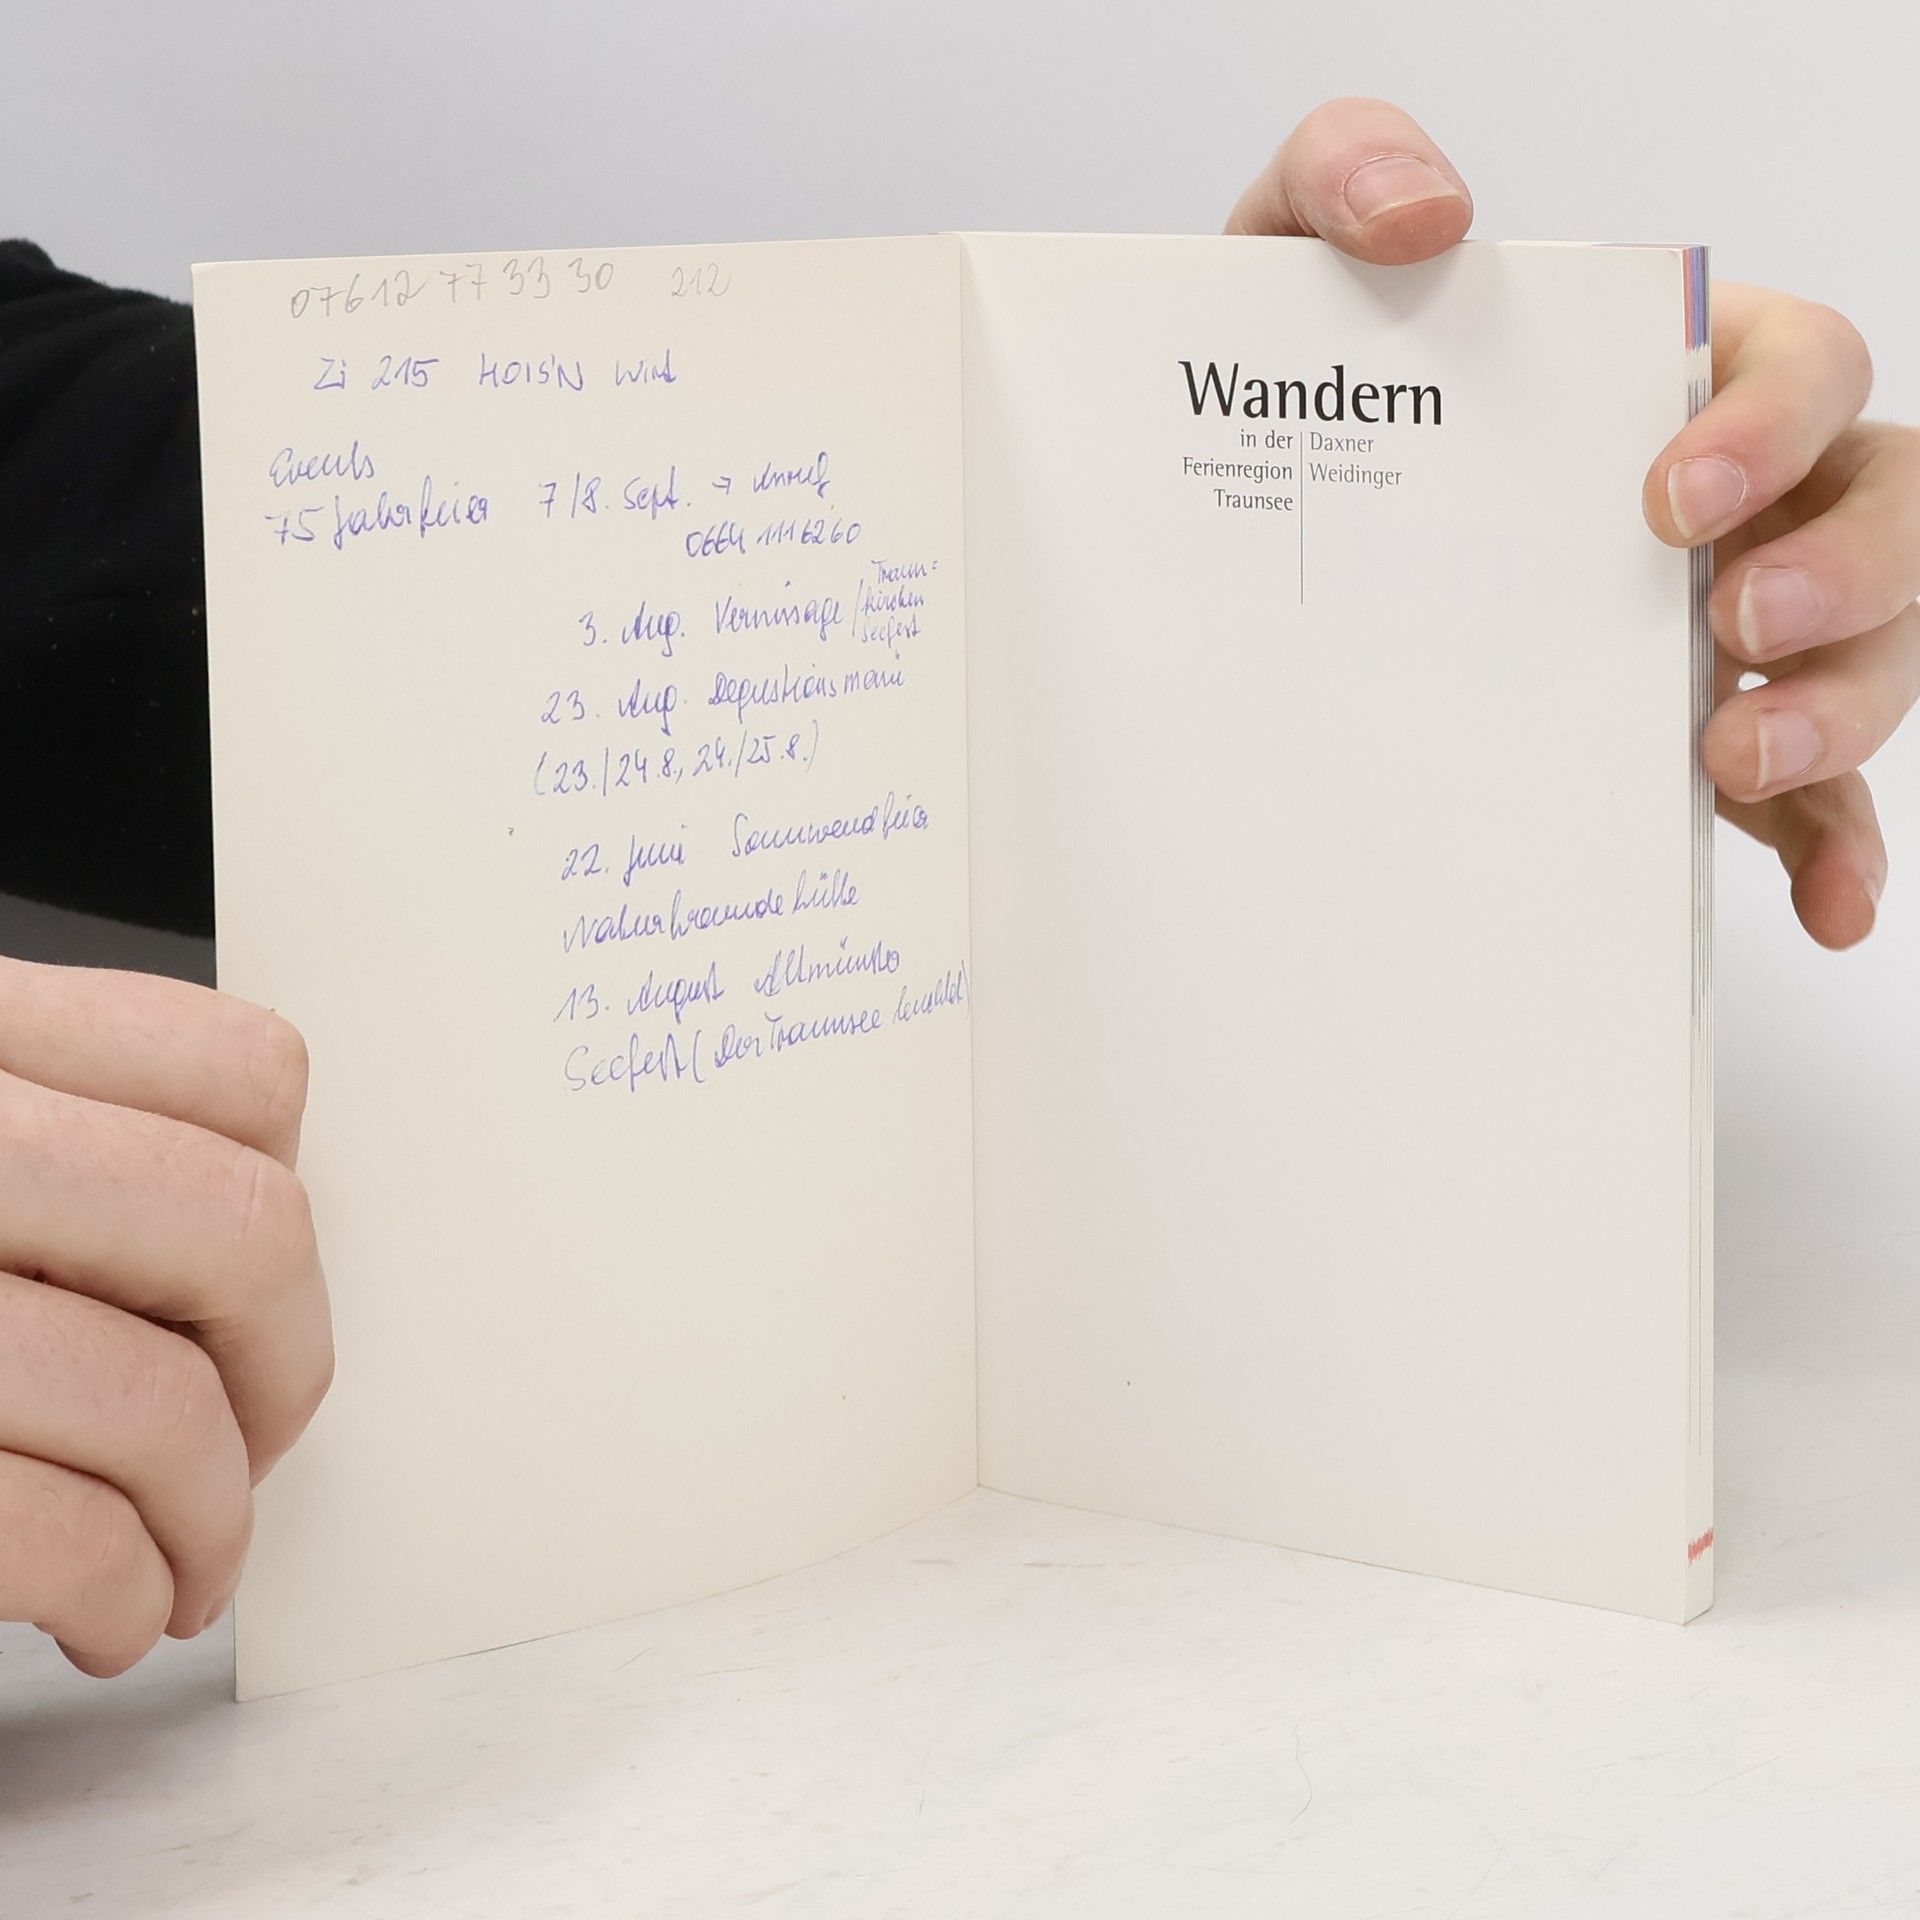 07612 77 33 30 212
Zi 215 HOIS'N Wirt
Events
75 Jahrfeier 7/8. Sept. → Anruf
0664 1116260
3. Aug. Vernissage / Traun=
kirchen
Seefest
23. Aug. Degustionsmenü
(23./24.8., 24./25.8.)
22. Juni Sonnwendfeier
Naturfreundehütte
13. August Altmünster
Seefest (Der Traunsee leuchtet)
Wandern
in der
Ferienregion
Traunsee
Daxner
Weidinger